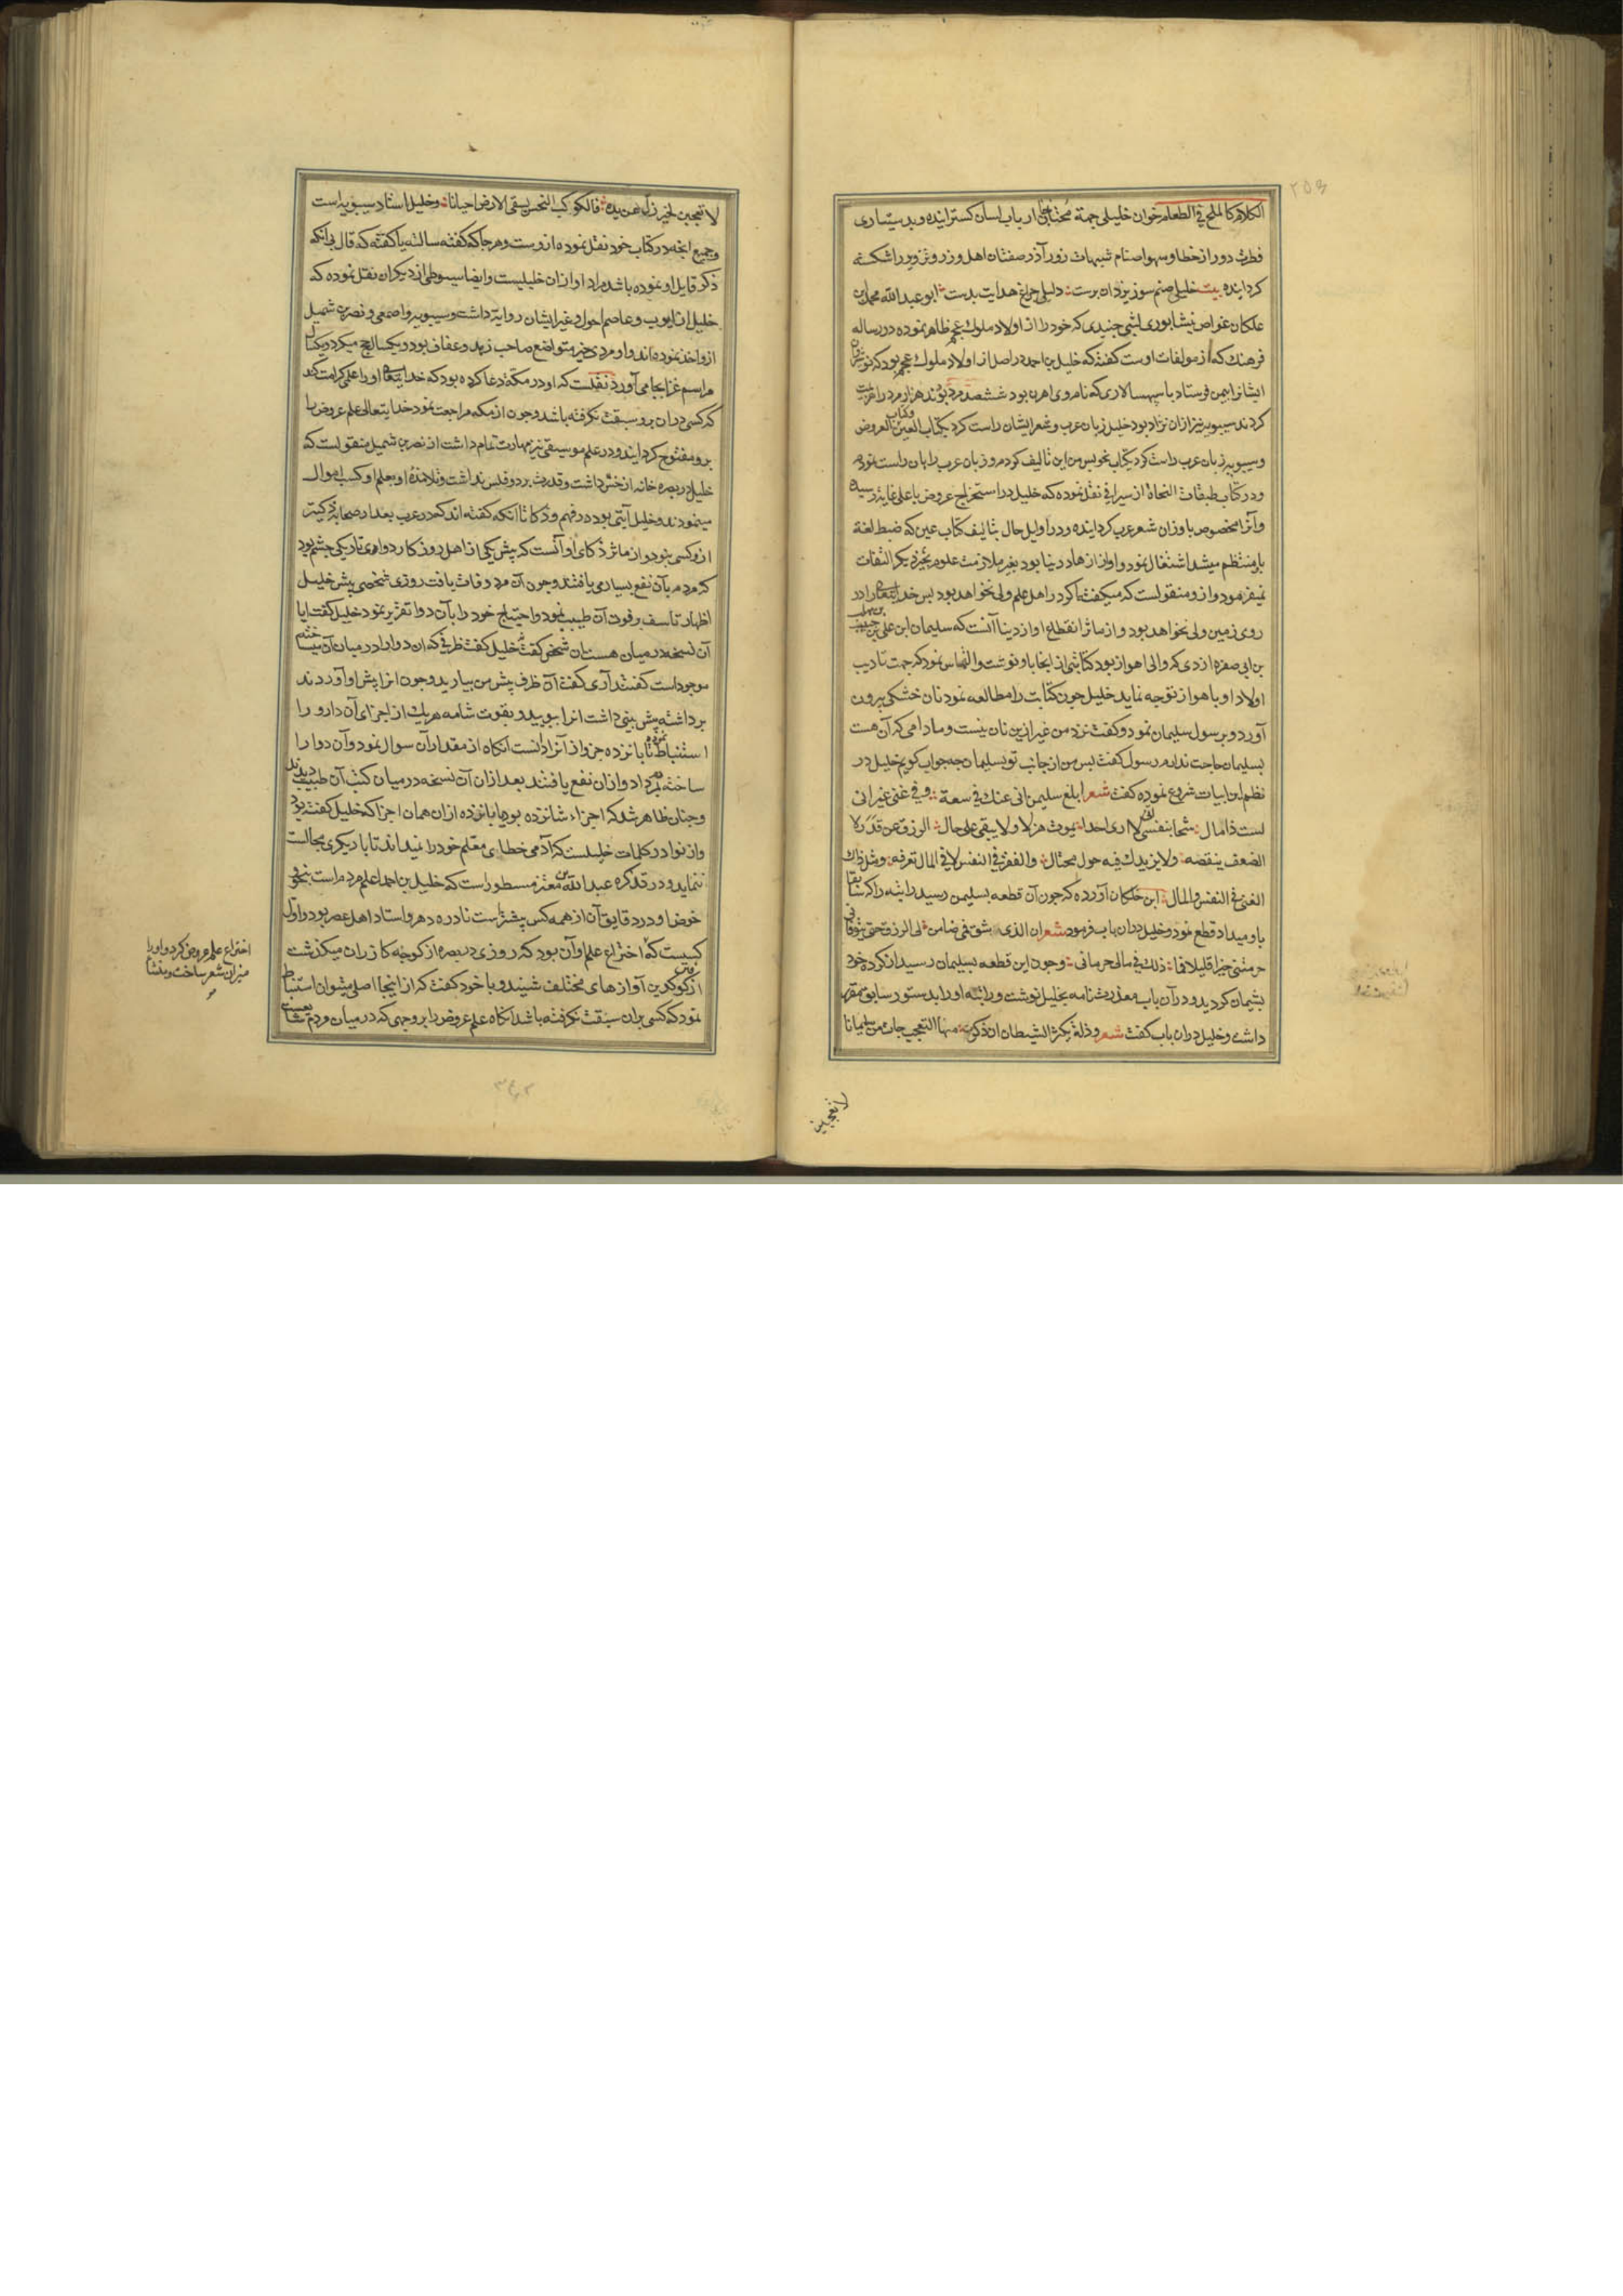 الکلام کالملح فی الطعام خوان خلیلی جهة محتاجان ارباب لسان کسترانیده و بدستیاری
فطرت دور از خطا و سهو اصنام شبهات زور آذر صفتان اهل وزر و وثن ویر را شکسته
کردانیده بیت خلیلی صنم سوز یزدان پرست دلیلی چراغ هدایت بدست ابو عبد الله محمد بن
علکان غواص نیشابوری لشی جنیدی که خود را از اولاد ملوک عجم ظاهر نموده در رساله
فرهنک که از مولفات اوست کفته که خلیل بن احمد در اصل از اولاد ملوک عجم بود که نوشیروان
ایشانرا بیمن فرستاد با سپهسالاری که نام وی اهرن بود ششصد مرد بودند هزار مرد را هزیمت
کردند سیبویه نیز ازان نژاد بود خلیل زبان عرب و شعر ایشان راست کرد بکتاب العین و کتاب العروض
و سیبویه زبان عرب راست کرد بکتاب نحو پس من این تالیف کردم و زبان عرب را بان راست نمودم
و در کتاب طبقات النحاة از سیرافی نقل نموده که خلیل در استخراج عروض باعلی غایة رسیده
و آنرا مخصوص باوزان شعر عرب کردانیده و در اوایل حال بتالیف کتاب عین که ضبط لغة
باو منتظم میشد اشتغال نمود و او از زهاد دنیا بود بغیر ملازمت علوم بچیز دیکر التفات
نمیفرمود و ازو منقولست که میکفته اکر در اهل علم ولی نخواهد بود پس خدایتعالی را در
روی زمین ولی نخواهد بود و از ماثر انقطاع او از دنیا آنست که سلیمان ابن علی بن حبیب بن مهلب
بن ابی صفره ازدی که والی اهواز بود کتابتی از انجا باو نوشت و التماس نمود که جهت تادیب
اولاد او باهواز توجه نماید خلیل چون کتابت را مطالعه نمود نان خشکی بیرون
آورد و برسول سلیمان نمود و کفت نزد من غیر ازین نان نیست و مادامی که آن هست
بسلیمان حاجت ندارم رسول کفت پس من از جانب تو بسلیمان چه جواب کویم خلیل در
نظم این ابیات شروع نموده کفت شعر ابلغ سلیمن انی عنک فی سعة و فی غنی غیر انی
لست ذا مال شحا بنفسی انی لا اری احدا یموت هزلا و لا یبقی علی حال الرزق عن قدر لا
الضعف ینقصه و لا یزیدک فیه حول محتال و الفقر فی النفس لا فی المال تعرفه و مثل ذاک
الغنی فی النفس و المال ابن خلکان آورده که چون آن قطعه بسلیمن رسید راتبه را که سابقا
باو میداد قطع نمود و خلیل دران باب فرمود شعر ان الذی شق فمی ضامن لی الرزق حتی یتوفانی
حرمتنی خیرا قلیلا فما ذلک فی مالی حرمانی و چون این قطعه بسلیمان رسید از کرده خود
پشیمان کردید و در آن باب معذرت نامه بخلیل نوشت و راتبه او را بدستور سابق مقرر
داشت و خلیل دران باب کفت شعر و ذلة یکثر الشیطان ان ذکرت منها التعجب جاءت من سلیمانا
لا تعجبن
لا تعجبن لخیر زل عن یده فالکوکب النحس یسقی الارض احیانا و خلیل استاد سیبویه است
و جمیع انچه در کتاب خود نقل نموده ازوست و هر جا که کفته سالته یا کفته که قال بی انکه
ذکر قایل او نموده باشد مراد او ازان خلیلست و ایضا سیوطی از دیکران نقل نموده که
خلیل از ایوب و عاصم احول و غیر ایشان روایة داشت و سیبویه و اصمعی و نضر بن شمیل
ازو اخذ نموده اند و او مردی خیر متواضع صاحب زهد و عفاف بود و یکسال حج میکرد و یکسال
مراسم غزا بجا می آورد نقلست که او در مکه دعا کرده بود که خدایتعالی او را علمی کرامت کند
که کسی دران برو سبقت نکرفته باشد و چون از مکه مراجعت نمود خدایتعالی علم عروض را
برو مفتوح کردانید و در علم موسیقی نیز مهارت تمام داشت از نضر بن شمیل منقولست که
خلیل در بصره خانه از خس داشت و قدرت بر دو فلس نداشت و تلامذه او بعلم او کسب اموال
مینمودند و خلیل آیتی بوده در فهم و ذکا تا آنکه کفته اند که در عرب بعد از صحابه ذکی تر
ازو کسی نبود و از ماثر ذکای او آنست که پیش یکی از اهل روزکار دوای تاریکی چشم بود
که مردم بآن نفع بسیار می یافتند و چون آن مرد وفات یافت روزی شخصی پیش خلیل
اظهار تاسف بر فوت آن طبیب نمود و احتیاج خود را بآن دوا تقریر نمود خلیل کفت ایا
آن نسخه در میان هست آن شخص کفت نه خلیل کفت ظرفی که ان دوا را در میان آن میساختند
موجود است کفتند آری کفت آن ظرف پیش من بیارید و چون انرا پیش او آوردند
برداشته پیش بینی داشت انرا بویید و بقوت شامه هر یک از اجزای آن دارو را
استنباط نموده تا پانزده جزو از آنرا دانست آنکاه از مقدار آن سوال نمود و آن دوا را
ساخته بمردم داد و ازان نفع یافتند بعد ازان آن نسخه در میان کتب آن طبیب دیدند
و چنان ظاهر شد که اجزاء شانزده بود و همان پانزده ازان همان اجزا که خلیل کفته بود
و از نوادر کلمات خلیلست که آدمی خطای معلم خود را نمیداند تا با دیکری مجالست
ننماید و در تذکره عبد الله بن معتز مسطور است که خلیل بن احمد اعلم مردم است بنحو و
غوض او در دقایق آن از همه کس پیشتر است نادره دهر و استاد اهل عصر بود و اول
کسیست که اختراع علم و آن بود که روزی در بصره از کوچه کازران میکذشت
از کوفتن کدین آوازهای مختلف شنید و با خود کفت که از اینجا اصلی میتوان استنباط
نمود که کسی بران سبقت نکرفته باشد انکاه علم عروض را بر وجهی که در میان مردم شایعست
اختراع علم عروض کرد و او را
میزان شعر ساخت و منشا